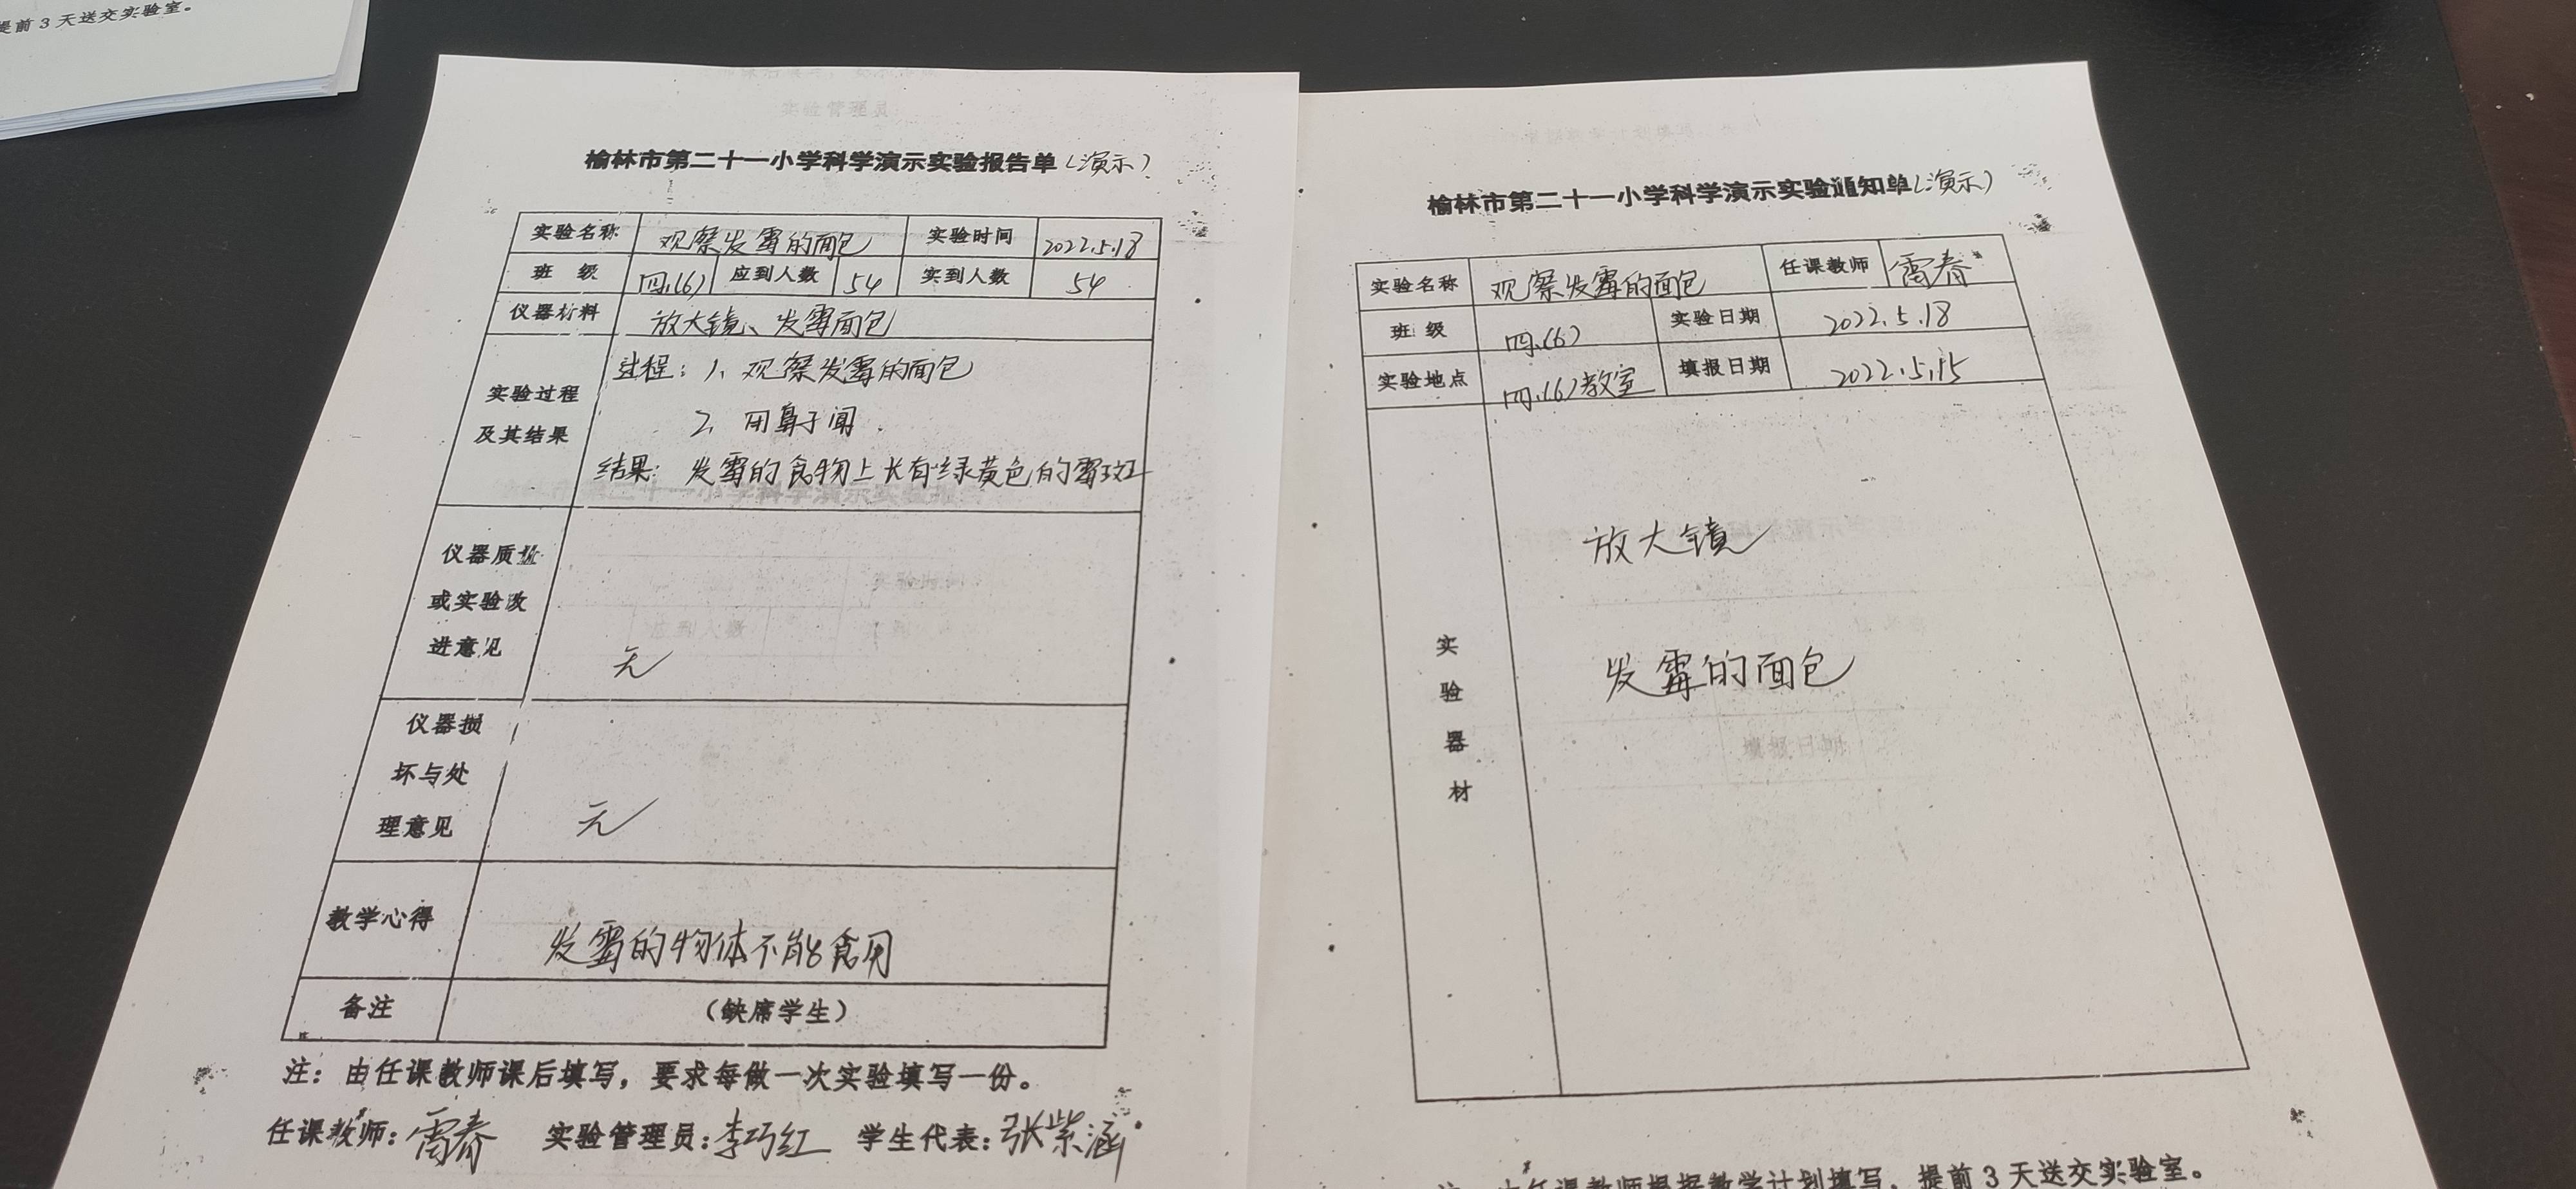 提前3天送交实验室。
榆林市第二十一小学科学演示实验报告单（演示）
实验名称 观察发霉的面包 实验时间 2022.5.18
班 级 四.(6) 应到人数 54 实到人数 54
仪器材料 放大镜、发霉面包
实验过程
及其结果
过程：1、观察发霉的面包
2、用鼻子闻.
结果：发霉的食物上长有绿黄色的霉斑
仪器质量
或实验改
进意见
无
仪器损
坏与处
理意见
无
教学心得 发霉的物体不能食用
备注 （缺席学生）
注：由任课教师课后填写，要求每做一次实验填写一份。
任课教师：雷春 实验管理员：李巧红 学生代表：张紫涵
榆林市第二十一小学科学演示实验通知单（演示）
实验名称 观察发霉的面包 任课教师 雷春
班 级 四.(6) 实验日期 2022.5.18
实验地点 四.(6)教室 填报日期 2022.5.15
实
验
器
材
放大镜
发霉的面包
注：由任课教师根据教学计划填写，提前3天送交实验室。